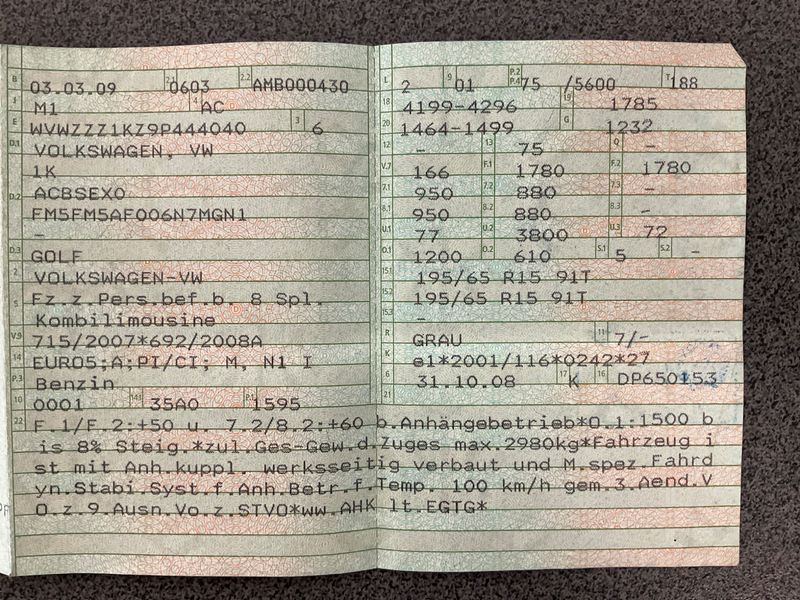 B 03.03.09 2.1 0603 2.2 AMB000430
J M1 4 AC
E WVWZZZ1KZ9P444040 3 6
D.1 VOLKSWAGEN, VW
1K
D.2 ACBSEX0
FM5FM5AF006N7MGN1
-
D.3 GOLF
2 VOLKSWAGEN-VW
5 Fz.z.Pers.bef.b. 8 Spl.
Kombilimousine
V.9 715/2007*692/2008A
14 EURO5;A;PI/CI; M, N1 I
P.3 Benzin
10 0001 14.1 35A0 P.1 1595
L 2 9 01 P.2 P.4 75 /5600 T 188
18 4199-4296 19 1785
20 1464-1499 G 1232
12 - 13 75 Q -
V.7 166 F.1 1780 F.2 1780
7.1 950 7.2 880 7.3 -
8.1 950 8.2 880 8.3 -
U.1 77 U.2 3800 U.3 72
O.1 1200 O.2 610 S.1 5 S.2 -
15.1 195/65 R15 91T
15.2 195/65 R15 91T
15.3 -
R GRAU 11 7/-
K e1*2001/116*0242*27
6 31.10.08 17 K 16 DP650153
21
22 F.1/F.2:+50 u. 7.2/8.2:+60 b.Anhängebetrieb*O.1:1500 b
is 8% Steig.*zul.Ges-Gew.d.Zuges max.2980kg*Fahrzeug i
st mit Anh.kuppl. werksseitig verbaut und M.spez.Fahrd
yn.Stabi.Syst.f.Anh.Betr.f.Temp. 100 km/h gem.3.Aend.V
O.z.9.Ausn.Vo.z.STVO*ww.AHK lt.EGTG*